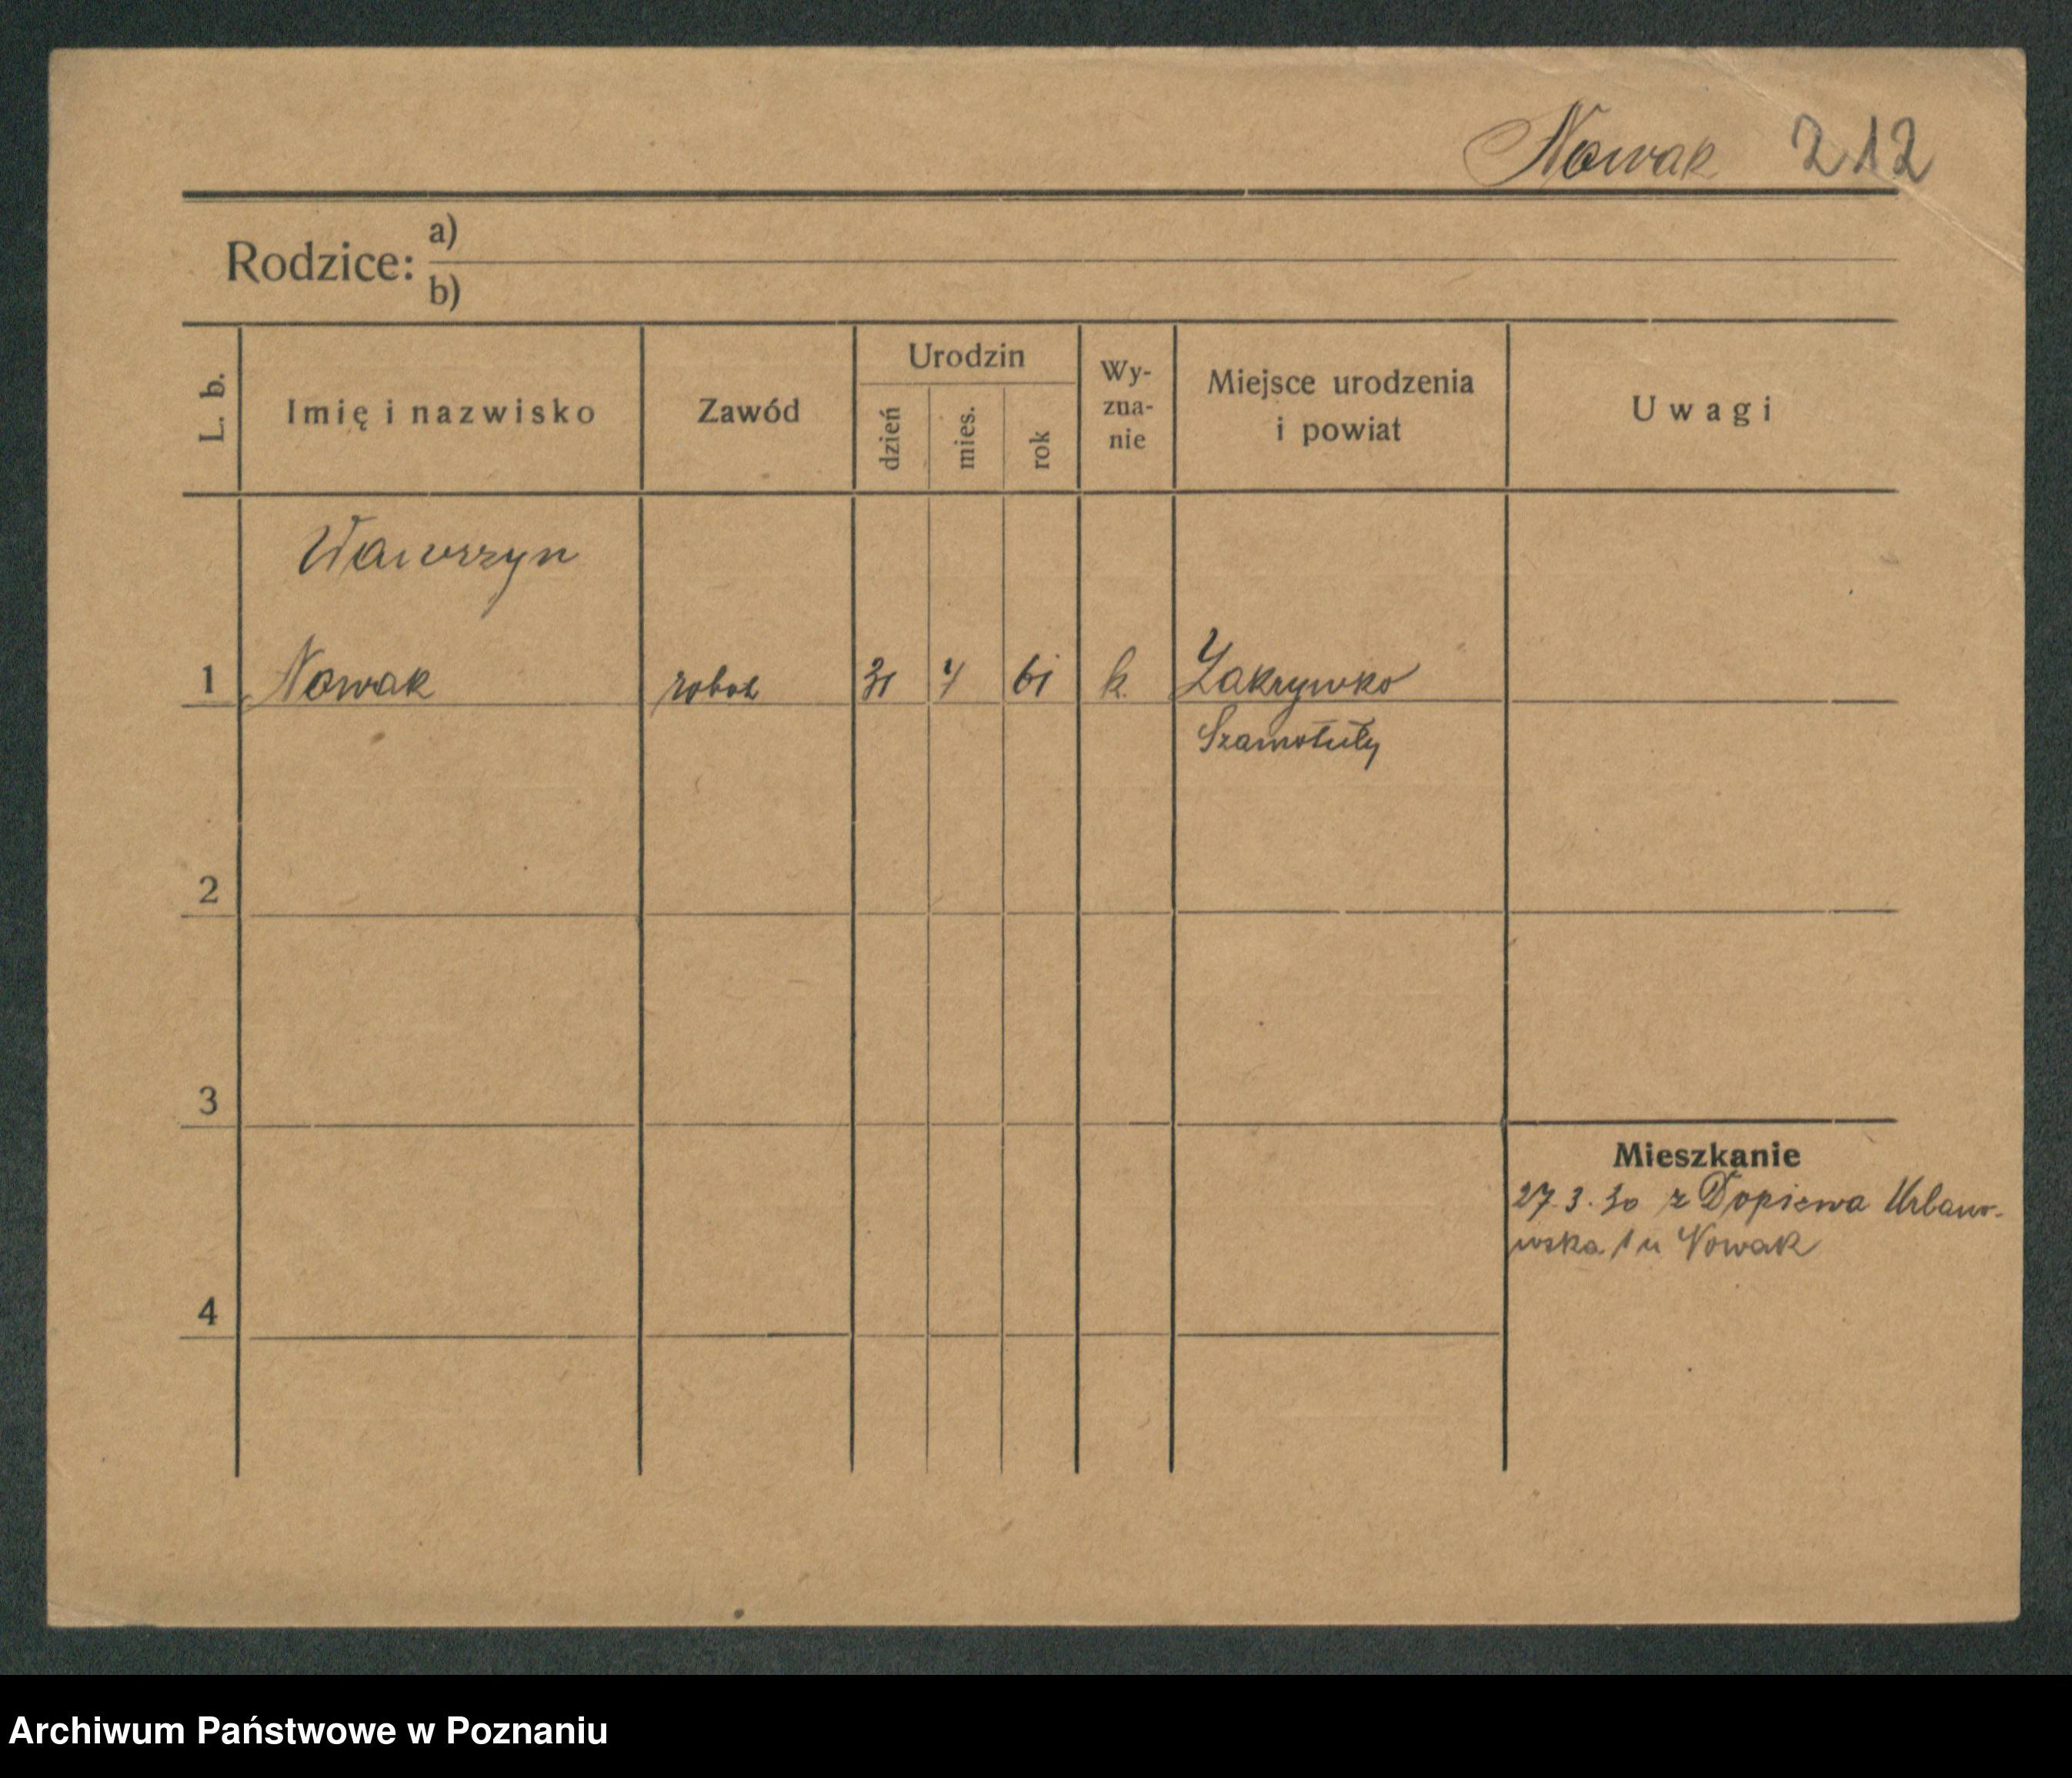 Nowak 212
Rodzice: a)
b)
L. b.
Imię i nazwisko
Zawód
Urodzin
dzień
mies.
rok
Wy-
zna-
nie
Miejsce urodzenia
i powiat
Uwagi
Wawrzyn
1 Nowak robot 31 7 61 k. Zakrywko
Szamotuły
2
3
Mieszkanie
27.3.30 z Dopiewa
1 u Nowak
4
Archiwum Państwowe w Poznaniu